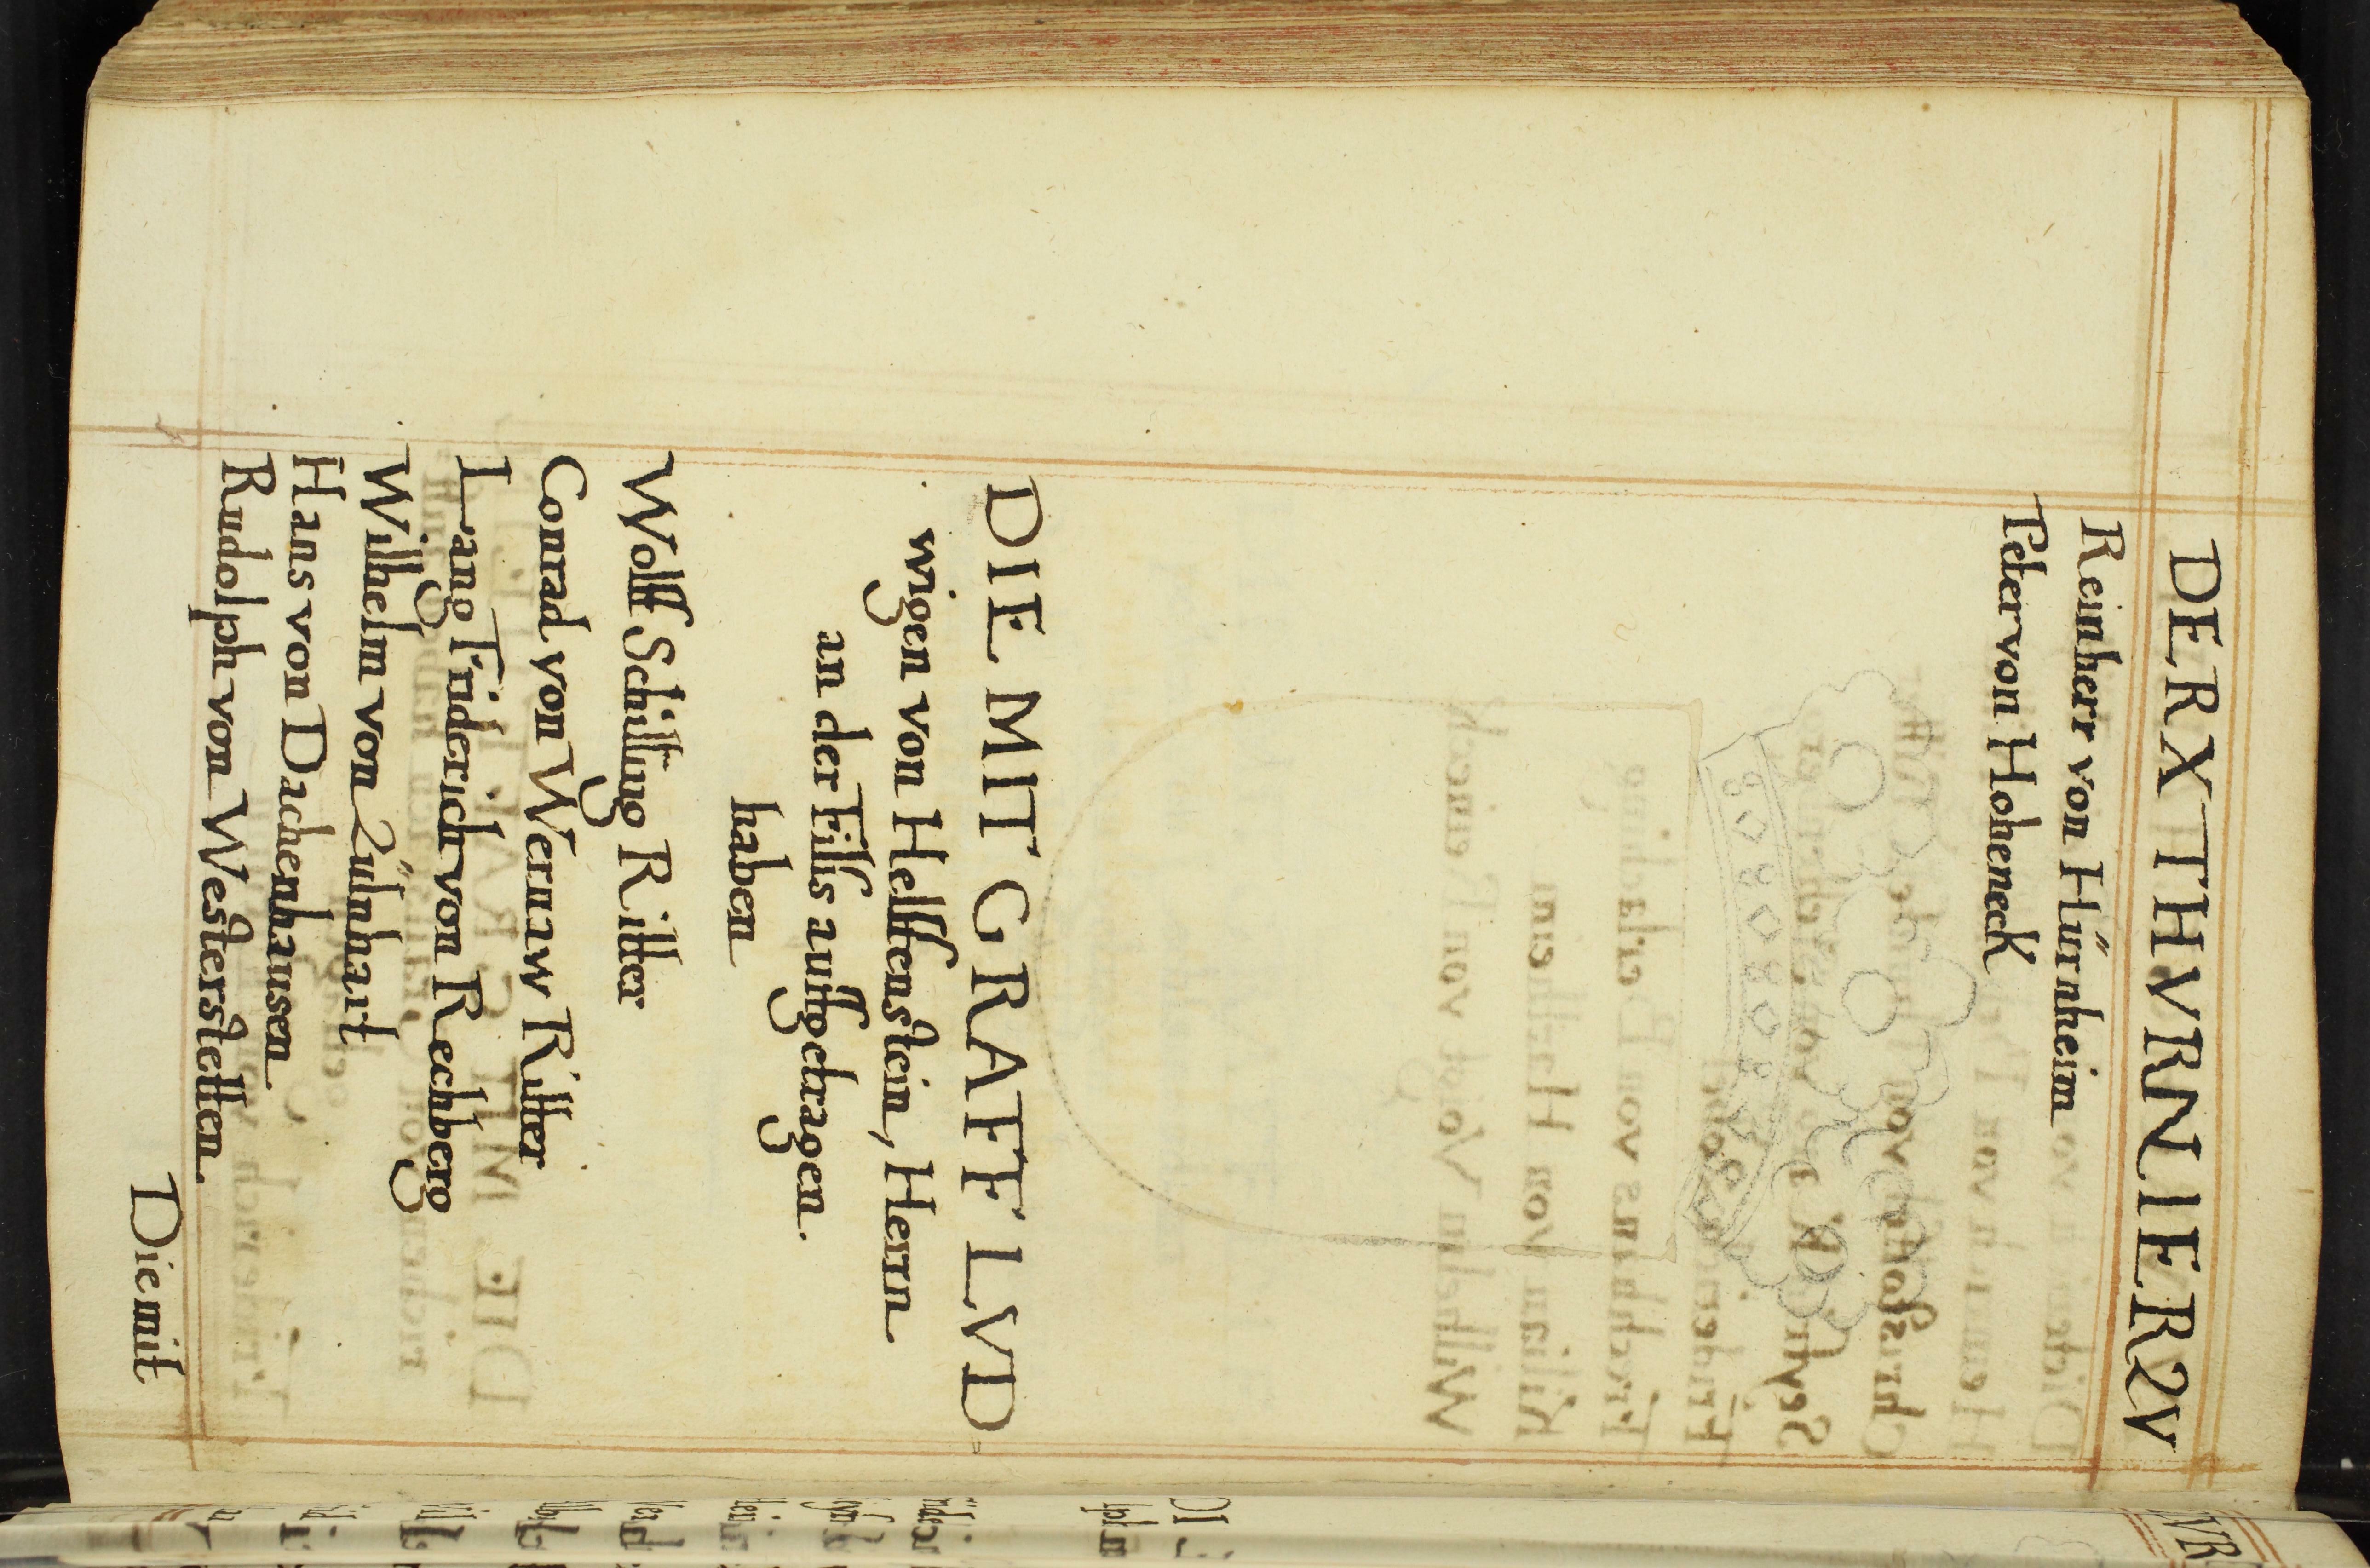 DER X THVRNIER ZV
Reinherr von Hürnheim
Peter von Hoheneck
DIE MIT GRAFF LVD
wigen von Helffenstein, Herrn
an der Filss auffgetragen
haben
Wolff Schilling Ritter
Conrad von Wernaw Ritter
Lang Friderich von Rechberg
Wilhelm von Züلnhart
Hans von Dachenhausen
Rudolph von Westerstetten
Die mit